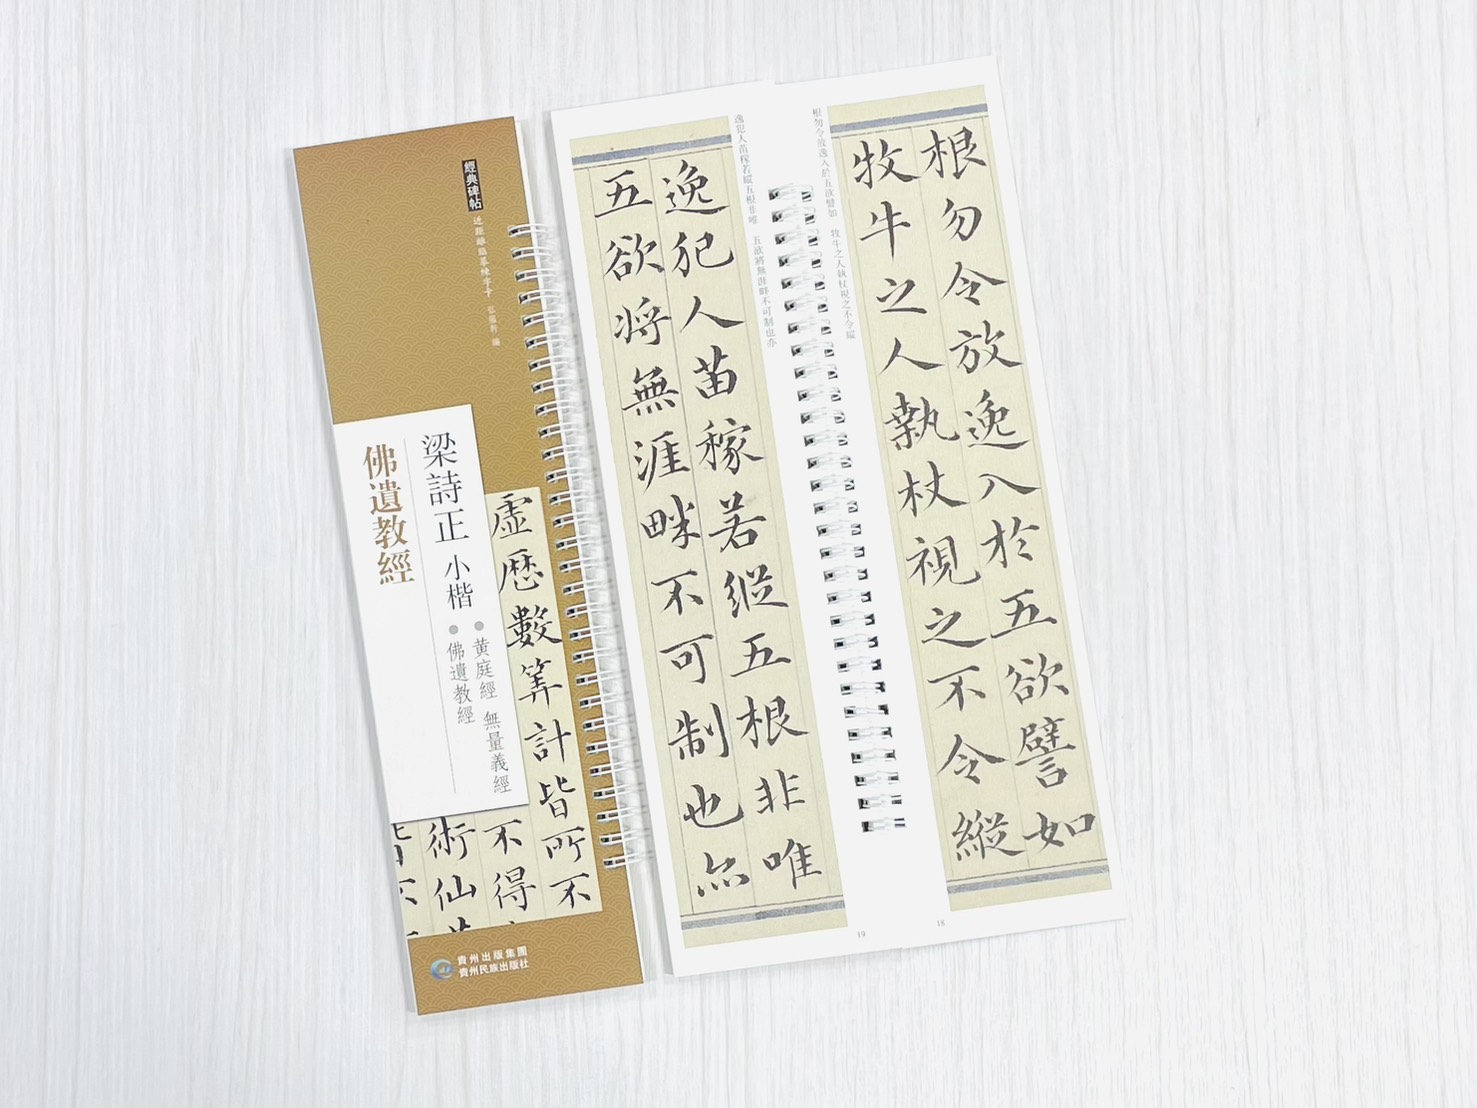 經典碑帖
近距離臨摹練字卡 弘蘊軒 編
梁詩正 小楷
佛遺教經
● 黄庭經 無量義經
● 佛遺教經
虛曆數筭計皆所不
不得
術仙
貴州出版集團
貴州民族出版社
根勿令放逸入於五欲譬如
牧牛之人執杖視之不令縱
根勿令放逸入於五欲譬如 牧牛之人執杖視之不令縱
18
逸犯人苗稼若縱五根非唯
五欲將無涯畔不可制也亦
逸犯人苗稼若縱五根非唯 五欲將無涯畔不可制也亦
19